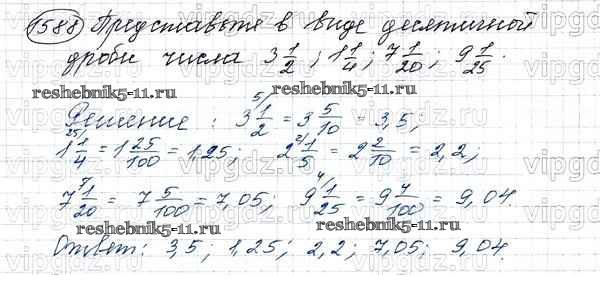 1588 Представьте в виде десятичной
дроби числа 3 1/2 ; 1 1/4 ; 7 1/20 ; 9 1/25.
reshebnik5-11.ru reshebnik5-11.ru
Решение : 3 1/2 ⁵⁾ = 3 5/10 = 3,5;
1 1/4 ²⁵⁾ = 1 25/100 = 1,25; 2 1/5 ²⁾ = 2 2/10 = 2,2;
7 1/20 = 7 5/100 = 7,05; 9 1/25 ⁴⁾ = 9 4/100 = 9,04.
reshebnik5-11.ru reshebnik5-11.ru
Ответ: 3,5; 1,25; 2,2; 7,05; 9,04.
vipgdz.ru vipgdz.ru vipgdz.ru